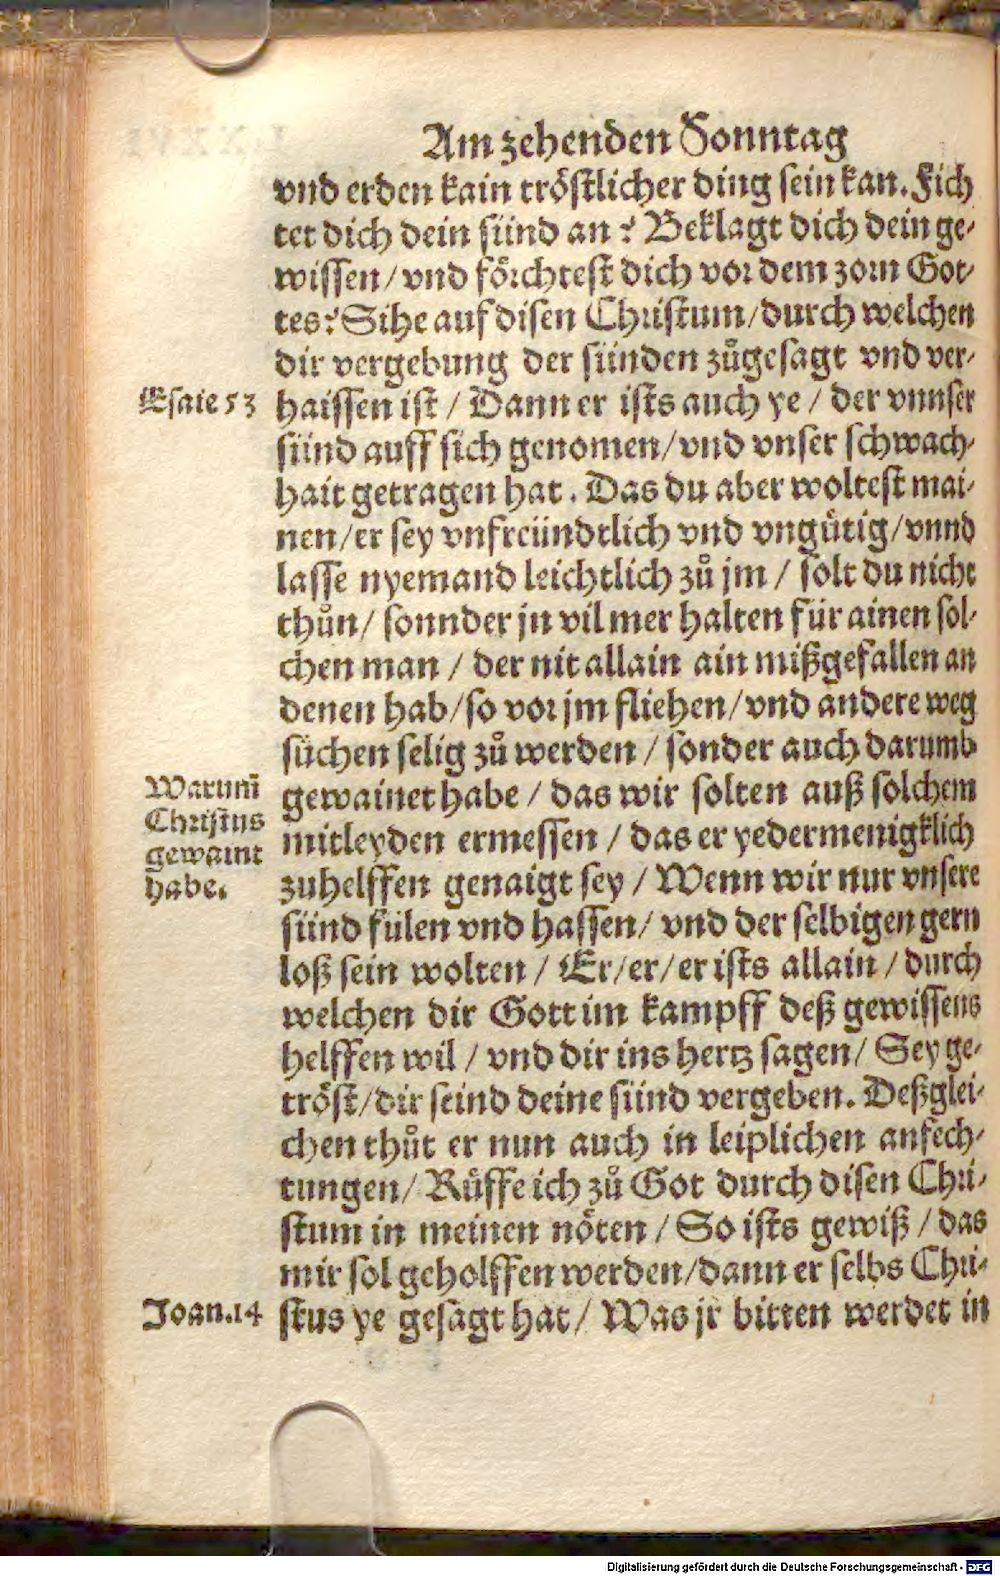 Am zehenden Sonntag
vnd erden kain tröstlicher ding sein kan. Fich
tet dich dein sünd an? Beklagt dich dein ge-
wissen/vnd förchtest dich vor dem zorn Got-
tes? Sihe auf disen Christum/durch welchen
dir vergebung der sünden zůgesagt vnd ver-
Esaie 53
haissen ist / Dann er ists auch ye / der vnnser
sünd auff sich genomen/vnd vnser schwach-
hait getragen hat. Das du aber woltest mai-
nen/er sey vnfreündtlich vnd vngütig/vnnd
lasse nyemand leichtlich zů jm / solt du nicht
thůn/ sonnder jn vil mer halten für ainen sol-
chen man / der nit allain ain mißgefallen an
denen hab/so vor jm fliehen/vnd andere weg
süchen selig zů werden / sonder auch darumb
Warum̃
Christus
gewaint
habe.
gewainet habe / das wir solten auß solchem
mitleyden ermessen / das er yedermenigklich
zuhelffen genaigt sey / Wenn wir nur vnsere
sünd fülen vnd hassen/ vnd der selbigen gern
loß sein wolten / Er/er/er ists allain / durch
welchen dir Gott im kampff deß gewissens
helffen wil / vnd dir ins hertz sagen/ Sey ge-
tröst/dir seind deine sünd vergeben. Deßglei-
chen thůt er nun auch in leiplichen anfech-
tungen/ Rüffe ich zů Got durch disen Chri-
stum in meinen nöten / So ists gewiß / das
mir sol geholffen werden/dann er selbs Chri-
Joan.14
stus ye gesagt hat/ Was jr bitten werdet in
Digitalisierung gefördert durch die Deutsche Forschungsgemeinschaft - DFG